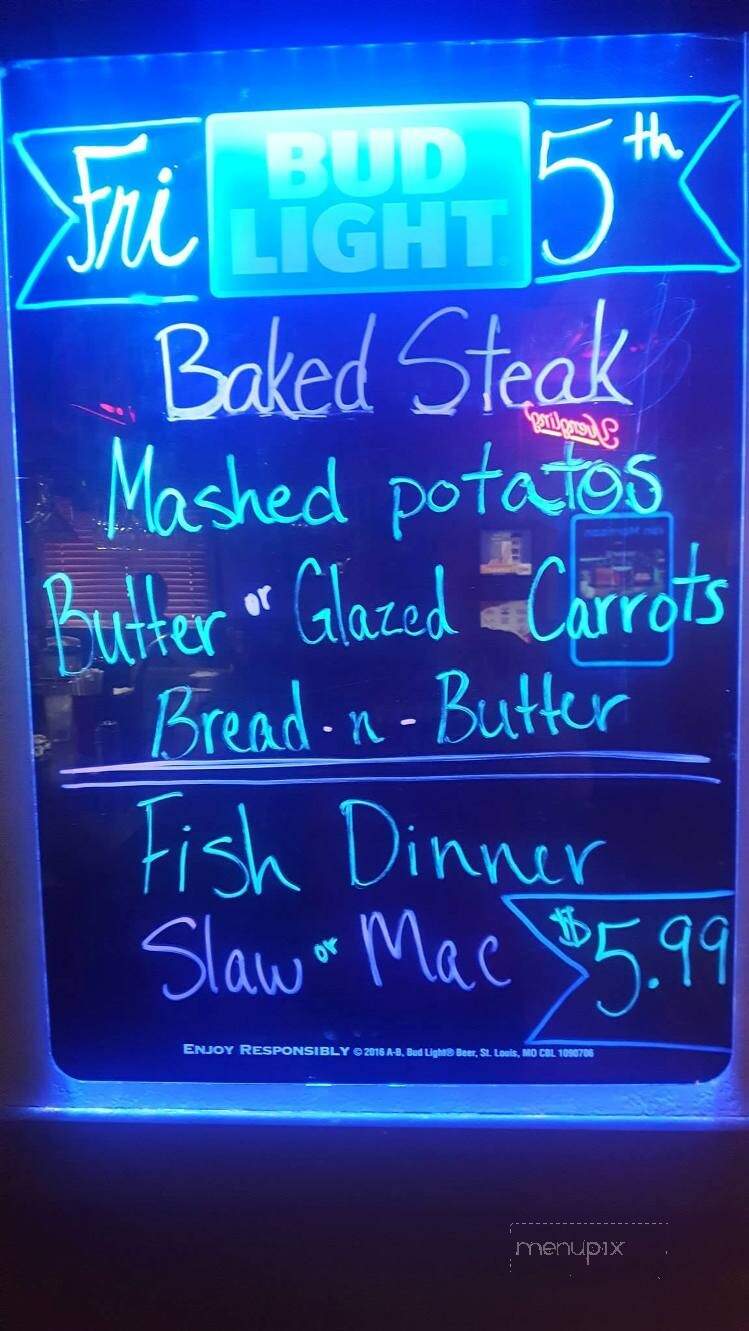 Fri BUD LIGHT 5th
Baked Steak
Yuengling
Mashed potatos
Butter or Glazed Carrots
Bread-n-Butter
Fish Dinner
Slaw or Mac $5.99
ENJOY RESPONSIBLY © 2016 A-B, Bud Light® Beer, St. Louis, MO CBL 1090706
menupix